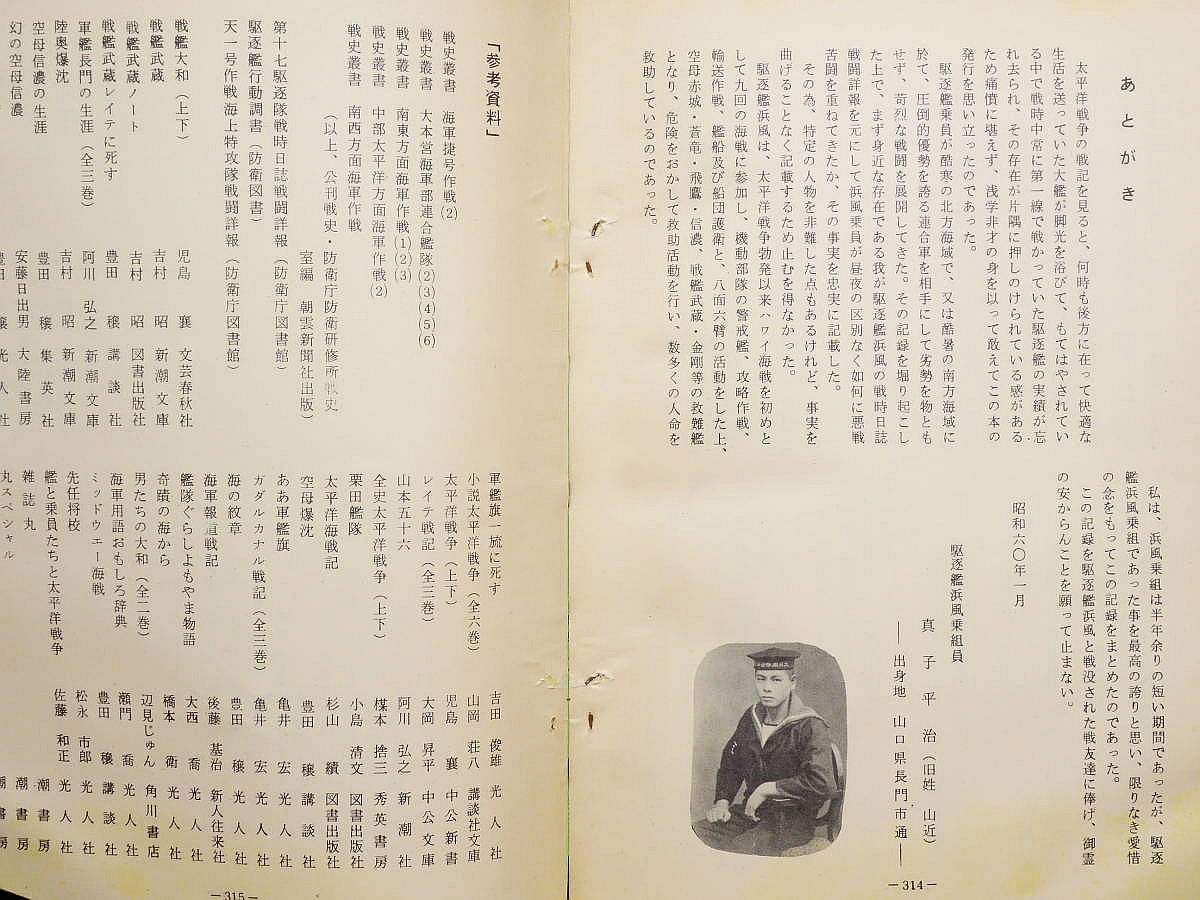 あとがき
太平洋戦争の戦記を見ると、何時も後方に在って快適な
生活を送っていた大艦が脚光を浴びて、もてはやされてい
る中で戦時中常に第一線で戦かっていた駆逐艦の実績が忘
れ去られ、その存在が片隅に押しのけられている感がある
ため痛憤に堪えず、浅学非才の身を以って敢えてこの本の
発行を思い立ったのであった。
駆逐艦乗員が酷寒の北方海域で、又は酷暑の南方海域に
於て、圧倒的優勢を誇る連合軍を相手にして劣勢を物とも
せず、苛烈な戦闘を展開してきた。その記録を堀り起こし
た上で、まず身近な存在である我が駆逐艦浜風の戦時日誌
戦闘詳報を元にして浜風乗員が昼夜の区別なく如何に悪戦
苦闘を重ねてきたか、その事実を忠実に記載した。
その為、特定の人物を非難した点もあるけれど、事実を
曲げることなく記載するため止むを得なかった。
駆逐艦浜風は、太平洋戦争勃発以来ハワイ海戦を初めと
して九回の海戦に参加し、機動部隊の警戒艦、攻略作戦、
輸送作戦、艦船及び船団護衛と、八面六臂の活動をした上、
空母赤城・蒼竜・飛鷹・信濃、戦艦武蔵・金剛等の救難艦
となり、危険をおかして救助活動を行い、数多くの人命を
救助しているのであった。
私は、浜風乗組は半年余りの短い期間であったが、駆逐
艦浜風乗組であった事を最高の誇りと思い、限りなき愛惜
の念をもってこの記録をまとめたのであった。
この記録を駆逐艦浜風と戦没された戦友達に捧げ、御霊
の安からんことを願って止まない。
昭和六〇年一月
駆逐艦浜風乗組員
真子平治(旧姓 山近)
――出身地 山口県長門市通――
―314―
「参考資料」
戦史叢書 海軍捷号作戦(2)
戦史叢書 大本営海軍部連合艦隊(2)(3)(4)(5)(6)
戦史叢書 南東方面海軍作戦(1)(2)(3)
戦史叢書 中部太平洋方面海軍作戦(2)
戦史叢書 南西方面海軍作戦
(以上、公刊戦史・防衛庁防衛研修所戦史
室編 朝雲新聞社出版)
第十七駆逐隊戦時日誌戦闘詳報(防衛庁図書館)
駆逐艦行動調書(防衛図書)
天一号作戦海上特攻隊戦闘詳報(防衛庁図書館)
戦艦大和(上下) 児島 襄 文芸春秋社
戦艦武蔵 吉村 昭 新潮文庫
戦艦武蔵ノート 吉村 昭 図書出版社
戦艦武蔵レイテに死す 豊田 穣 講談社
軍艦長門の生涯(全三巻) 阿川 弘之 新潮文庫
陸奥爆沈 吉村 昭 新潮文庫
空母信濃の生涯 豊田 穣 集英社
幻の空母信濃 安藤日出男 大陸書房
豊田 穣 光人社
軍艦旗一旒に死す 吉田 俊雄 光人社
小説太平洋戦争(全六巻) 山岡 荘八 講談社文庫
太平洋戦争(上下) 児島 襄 中公新書
レイテ戦記(全三巻) 大岡 昇平 中公文庫
山本五十六 阿川 弘之 新潮社
全史太平洋戦争(上下) 楳本 捨三 秀英書房
栗田艦隊 小島 清文 図書出版社
太平洋海戦記 杉山 績 図書出版社
空母爆沈 豊田 穣 講談社
ああ軍艦旗 亀井 宏 光人社
ガダルカナル戦記(全三巻) 亀井 宏 光人社
海の紋章 豊田 穣 光人社
海軍報道戦記 後藤 基治 新人往来社
艦隊ぐらしよもやま物語 大西 喬 光人社
奇蹟の海から 橋本 衛 光人社
男たちの大和(全二巻) 辺見じゅん 角川書店
海軍用語おもしろ辞典 瀬門 喬 光人社
ミッドウエー海戦 豊田 穣 講談社
先任将校 松永 市郎 光人社
艦と乗員たちと太平洋戦争 佐藤 和正 光人社
雑誌丸 潮書房
丸スペシャル 潮書房
―315―